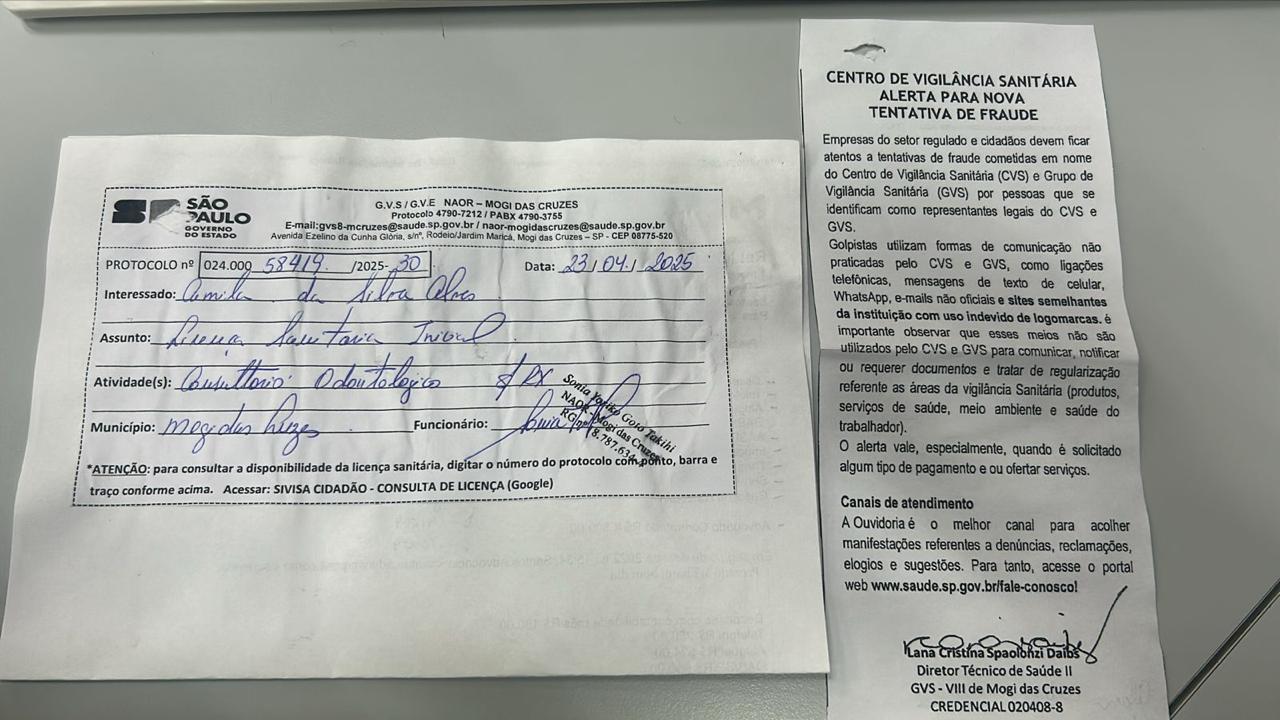 SÃO
PAULO
GOVERNO
DO ESTADO
G.V.S / G.V.E NAOR – MOGI DAS CRUZES
Protocolo 4790-7212 / PABX 4790-3755
E-mail:gvs8-mcruzes@saude.sp.gov.br / naor-mogidascruzes@saude.sp.gov.br
Avenida Ezelino da Cunha Glória, s/nº, Rodeio/Jardim Maricá, Mogi das Cruzes – SP - CEP 08775-520
PROTOCOLO nº 024.000 58419 /2025- 30 Data: 23/04/2025
Interessado: Camila da Silva Alves
Assunto: Licença Sanitaria Inicial
Atividade(s): Consultorio Odontologico s/ RX
Município: Mogi das Cruzes Funcionário:
Sonia Goto Takihi
NAOR - Mogi das Cruzes
RG
*ATENÇÃO: para consultar a disponibilidade da licença sanitária, digitar o número do protocolo com ponto, barra e
traço conforme acima. Acessar: SIVISA CIDADÃO - CONSULTA DE LICENÇA (Google)
CENTRO DE VIGILÂNCIA SANITÁRIA
ALERTA PARA NOVA
TENTATIVA DE FRAUDE
Empresas do setor regulado e cidadãos devem ficar
atentos a tentativas de fraude cometidas em nome
do Centro de Vigilância Sanitária (CVS) e Grupo de
Vigilância Sanitária (GVS) por pessoas que se
identificam como representantes legais do CVS e
GVS.
Golpistas utilizam formas de comunicação não
praticadas pelo CVS e GVS, como ligações
telefônicas, mensagens de texto de celular,
WhatsApp, e-mails não oficiais e sites semelhantes
da instituição com uso indevido de logomarcas. é
importante observar que esses meios não são
utilizados pelo CVS e GVS para comunicar, notificar
ou requerer documentos e tratar de regularização
referente as áreas da vigilância Sanitária (produtos,
serviços de saúde, meio ambiente e saúde do
trabalhador).
O alerta vale, especialmente, quando é solicitado
algum tipo de pagamento e ou ofertar serviços.
Canais de atendimento
A Ouvidoria é o melhor canal para acolher
manifestações referentes a denúncias, reclamações,
elogios e sugestões. Para tanto, acesse o portal
web www.saude.sp.gov.br/fale-conosco!
Lana Cristina Spaolonzi Daibs
Diretor Técnico de Saúde II
GVS - VIII de Mogi das Cruzes
CREDENCIAL 020408-8